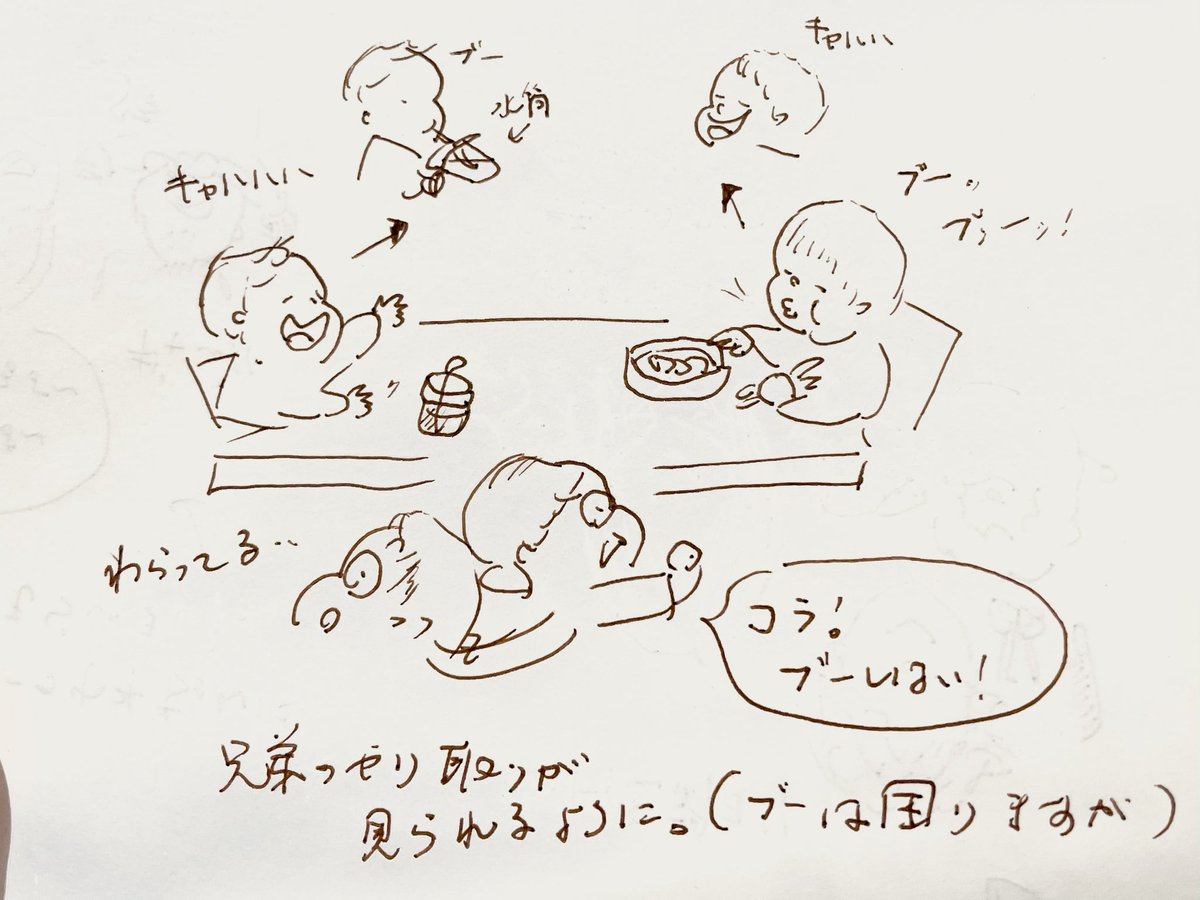 キャハハ
ブー
水筒
キャハハハハ
ブーッ
ブゥーッ!
わらってる‥
コラ!
ブーしない!
兄弟のやり取りが
見られるように。(ブーは困りますが)